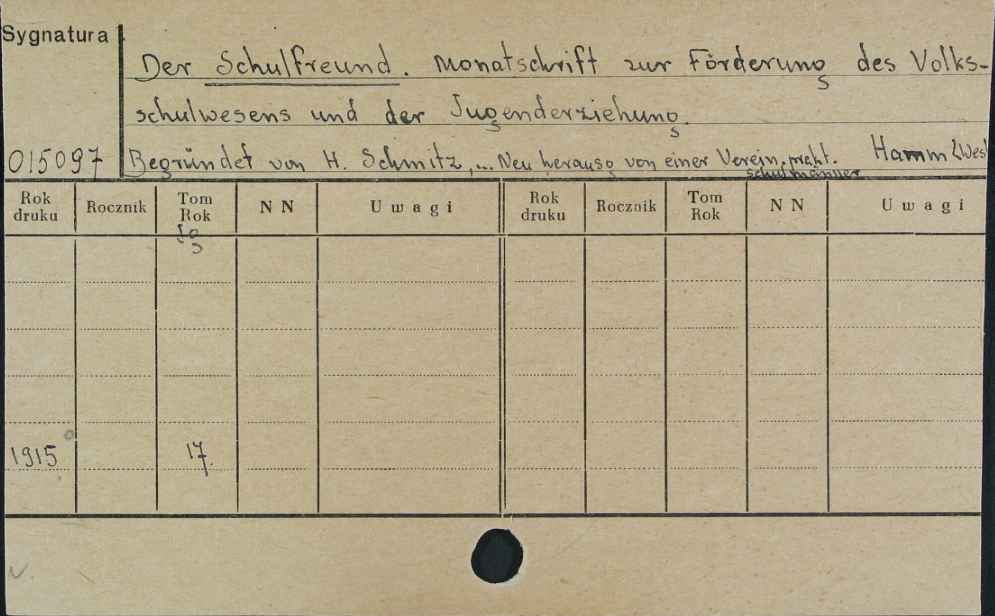 Sygnatura
Der Schulfreund. Monatschrift zur Förderung des Volks-
schulwesens und der Jugenderziehung.
015097 Begründet von H. Schmitz,... Neu herausg von einer Verein. prakt. Hamm (Wes
schulmänner
Rok druku Rocznik Tom Rok NN Uwagi Rok druku Rocznik Tom Rok NN Uwagi
1915 17.